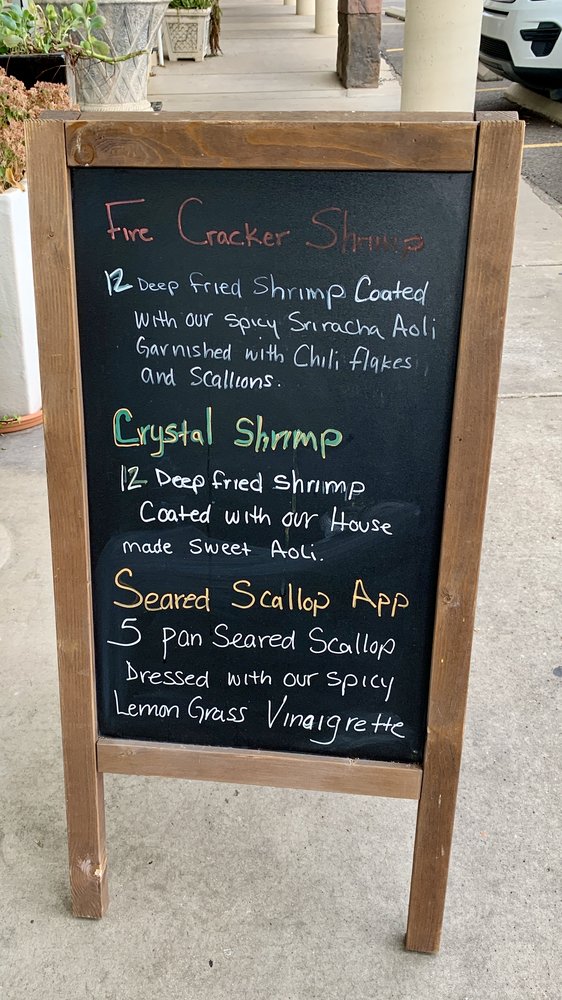 Fire Cracker Shrimp
12 Deep fried Shrimp Coated
with our spicy Sriracha Aoli
Garnished with Chili flakes
and Scallions.
Crystal Shrimp
12 Deep fried shrimp
Coated with our House
made Sweet Aoli.
Seared Scallop App
5 pan Seared Scallop
Dressed with our spicy
Lemon Grass Vinaigrette